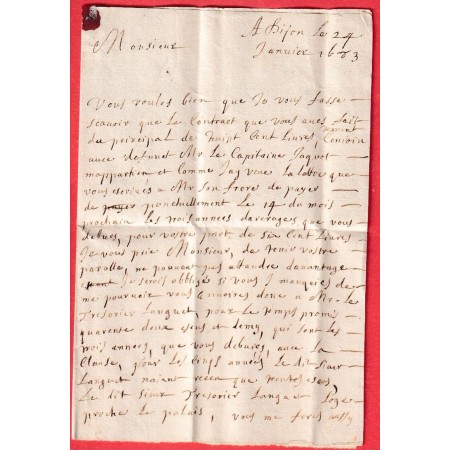 A Dijon le 24
Monsieur Janvier 1683
Vous voules bien que Je vous fasse
scavoir que le Contract que vous aves fait
du principal de huict Cent Livres,
avec defunct Mr. Le Capitaine Jaquot
mappartient et comme Jay veue la lettre que
vous escrives a Mr Son frere de payer
de payer ponctuellement le 14 du mois
prochain les trois annees darerages que vous
debves, pour vostre part de six cent Livres
Je vous prie Monsieur, de tenir vostre
parolle, ne pouvant pas attandre davantage
Je serois obligé si vous manques de
me pourvoir vous envoires donc a Mr. Le
Tresorier Languet, pour le temps promis
quarente deux escus et demy, qui sont les
trois annees, que vous debves, avec la
Clause, pour les cinq annees le dit sieur
Languet naiant receu que trente escus,
Le dit sieur Tresorier Languet Loge
proche le palais, vous me feres aussy